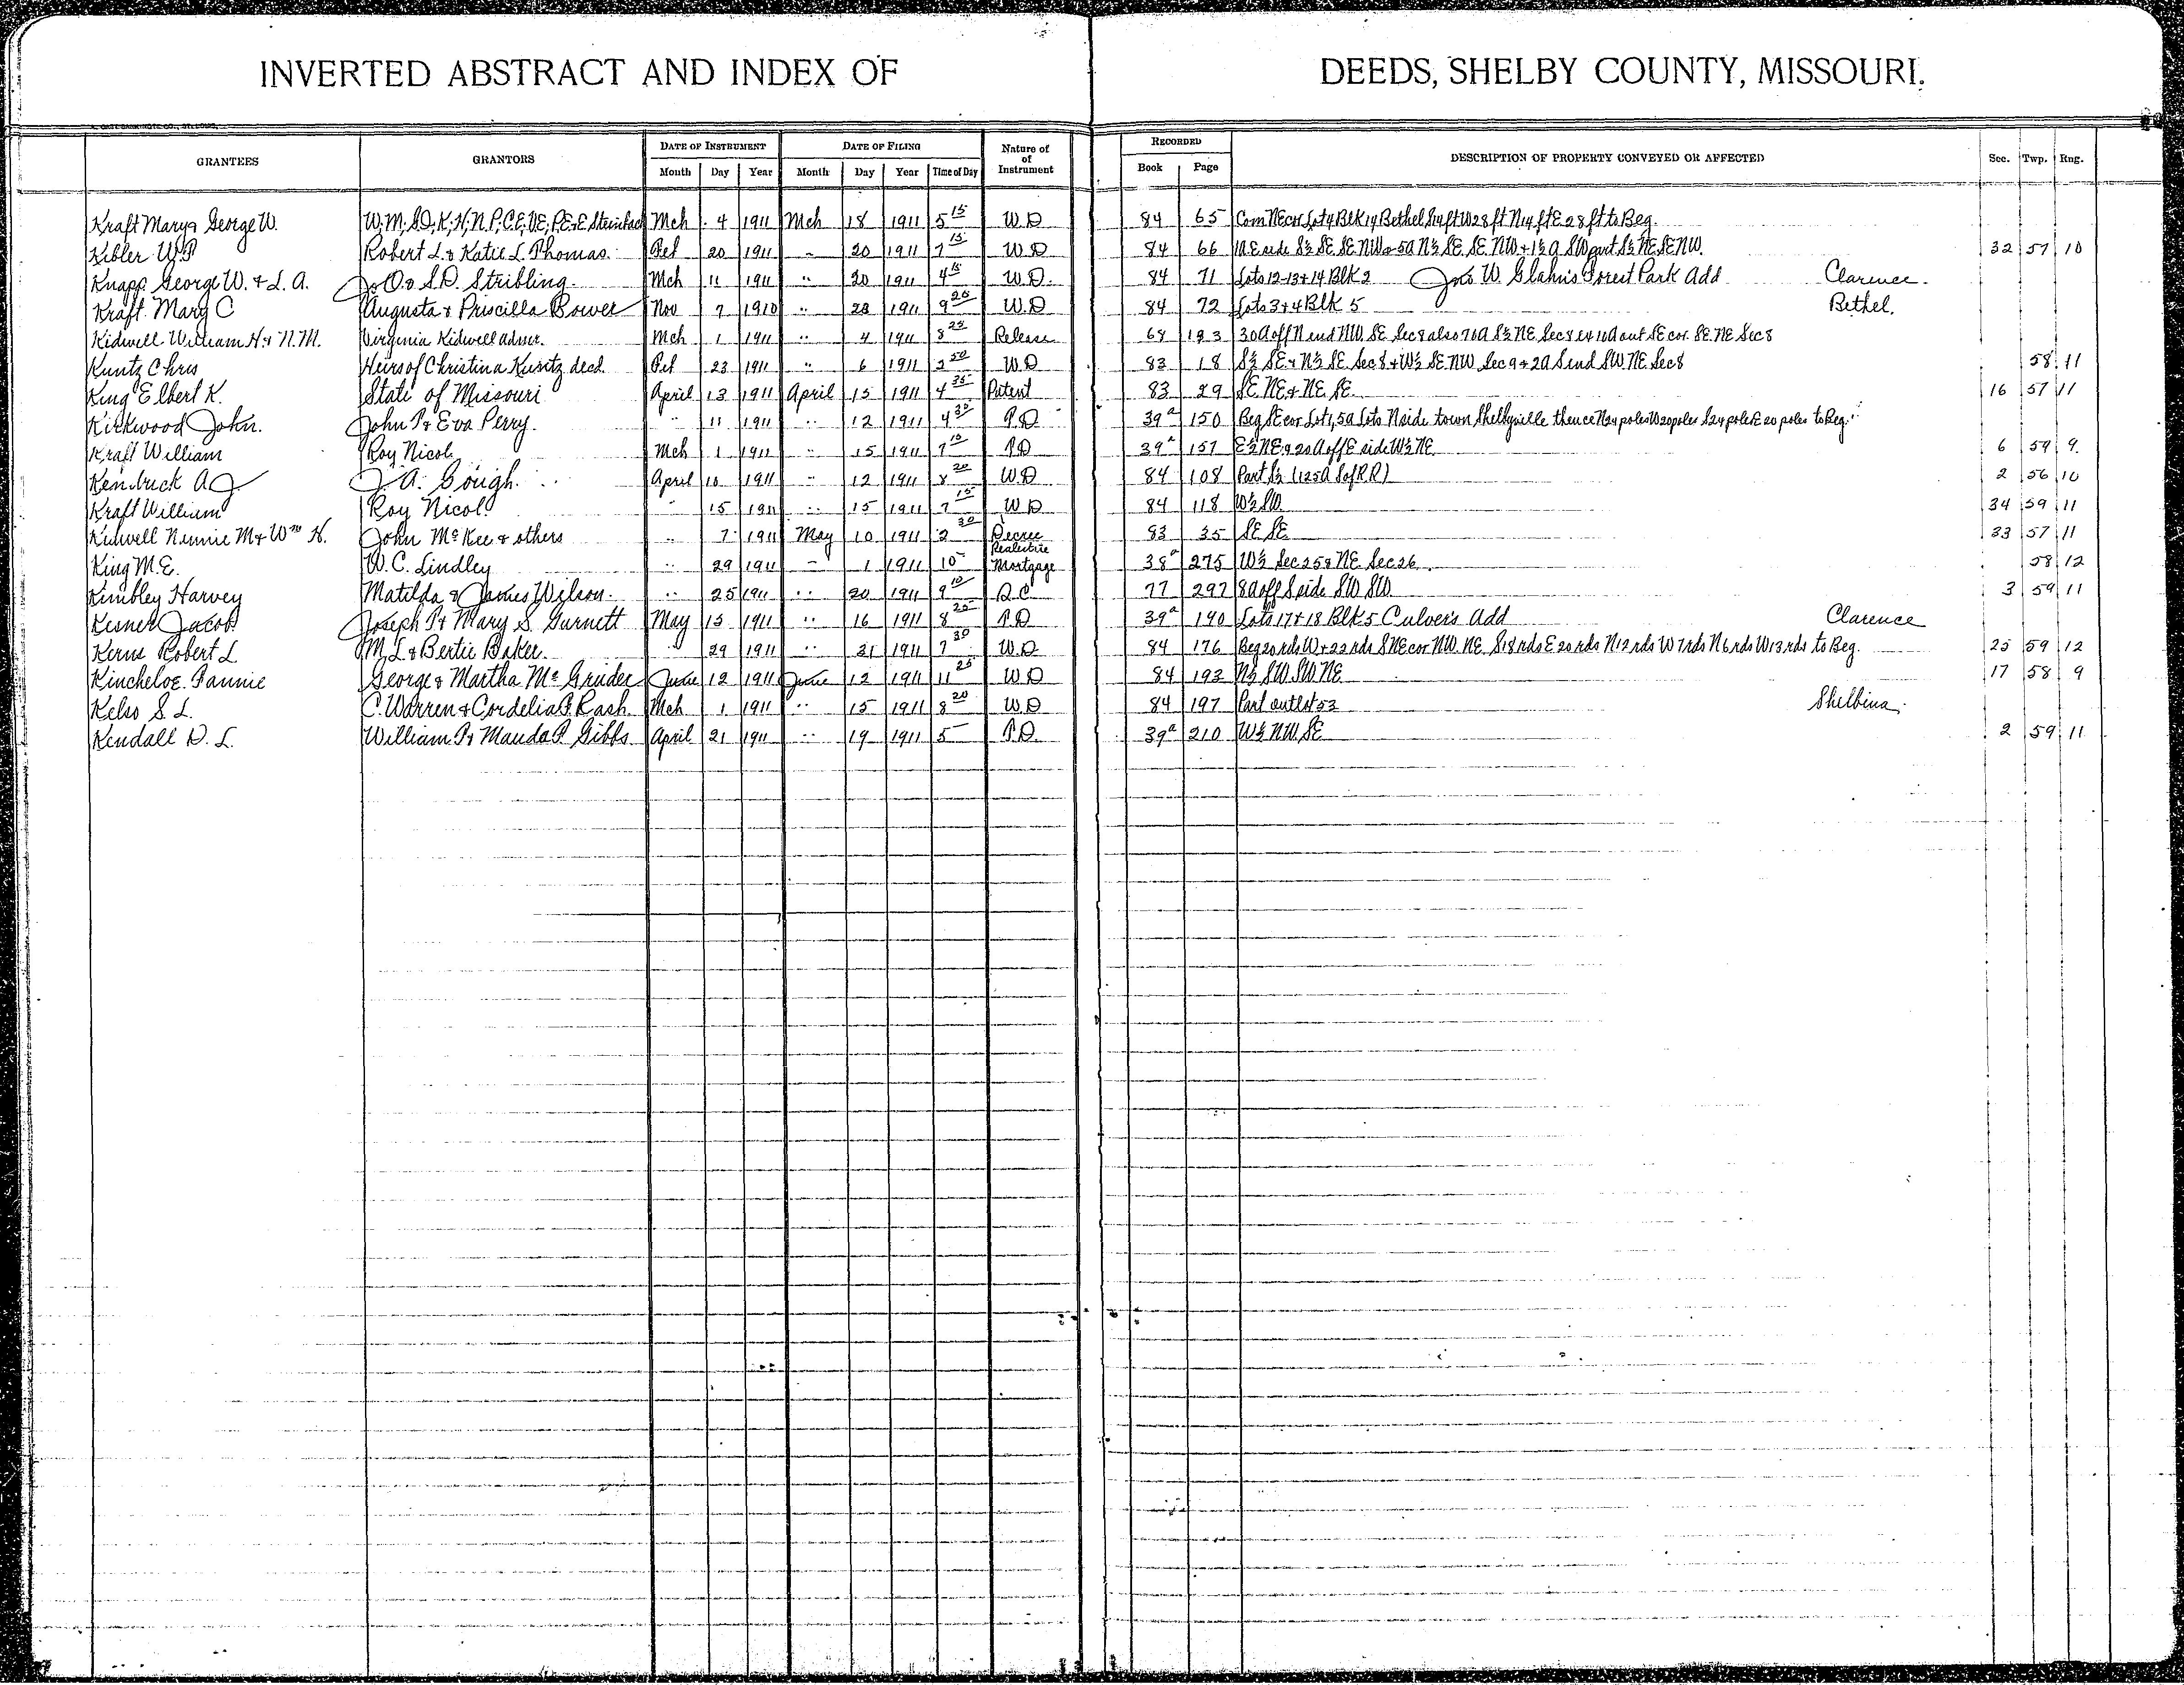 INVERTED ABSTRACT AND INDEX OF DEEDS, SHELBY COUNTY, MISSOURI.
GRANTEES GRANTORS DATE OF INSTRUMENT DATE OF FILING Nature of of Instrument RECORDED DESCRIPTION OF PROPERTY CONVEYED OR AFFECTED Sec. Twp. Rng.
Month Day Year Month Day Year Time of Day Book Page
Kraft Mary & George W. W.M; S.D; K; H; N.P; C.E; V.E; P.E & E Steinbach Mch 4 1911 Mch 18 1911 5 15 W.D 84 65 Com NE cor Lot 4 Blk 14 Bethel S 14 ft W 28 ft N 14 ft E 28 ft to Beg.
Kibler W.P Robert L. & Katie L. Thomas Feb 20 1911 " 20 1911 7 15 W.D 84 66 S½ SE SE NW & 5a N½ SE SE NW & 1½ a SW part S½ NE SE NW. 32 57 10
Knapp George W. & L. A. Jo O. & S.D. Stribling Mch 11 1911 " 20 1911 4 15 W.D. 84 71 Lots 12-13 & 14 Blk 2 Jno W. Glahn's Forest Park Add Clarence
Kraft Mary C Augusta & Priscilla Bower Nov 7 1910 " 28 1911 9 25 W.D 84 72 Lots 3 & 4 Blk 5 Bethel.
Kidwell William H. & N.M. Virginia Kidwell admr. Mch 1 1911 " 4 1911 8 25 Release 68 193 30a off N end NW SE Sec 8 also 70a S½ NE Sec 8 ex 10a out SE cor. SE NE Sec 8
Kuntz Chris Heirs of Christina Kuntz decd. Feb 23 1911 " 6 1911 2 50 W.D 83 18 S½ SE & N½ SE Sec 8 & W½ SE NW Sec 9 & 2a S end SW NE Sec 8 58 11
King Elbert K. State of Missouri April 13 1911 April 15 1911 4 35 Patent 83 29 SE NE & NE SE 16 57 11
Kirkwood John. John P. & Eva Perry. " 11 1911 " 12 1911 4 30 T.D 39a 150 Beg SE cor Lot 1, 5a Lots N side town Shelbyville thence N 24 poles W 20 poles S 24 poles E 20 poles to Beg.
Kraft William Roy Nicol Mch 1 1911 " 15 1911 7 10 T.D 39a 157 E½ NE & 20a off E side W½ NE 6 59 9
Kendrick A J J. A. Gough April 10 1911 " 12 1911 8 20 W.D 84 108 Part S½ (125a S of R.R) 2 56 10
Kraft William Roy Nicol " 15 1911 " 15 1911 7 15 W.D 84 118 W½ SW 34 59 11
Kidwell Nennie M & Wm H. John McKee & others " 7 1911 May 10 1911 2 30 Decree 83 35 SE SE 33 57 11
King M.E. W.C. Lindley " 29 1911 " 1 1911 10 Mortgage 38a 275 W½ Sec 25 & NE Sec 26 58 12
Kimbley Harvey Matilda & James Wilson " 25 1911 " 20 1911 9 10 Q.C 77 297 8a off S side SW SW 3 59 11
Kesner Jacob Joseph P. & Mary S. Gurnett May 15 1911 " 16 1911 8 25 T.D 39a 190 Lots 17 & 18 Blk 5 Culver's Add Clarence
Kerns Robert L M.L. & Bertie Baker " 29 1911 " 31 1911 7 30 W.D 84 176 Beg 20 rds W & 22 rds S NE cor NW NE S 18 rds E 20 rds N 12 rds W 7 rds N 6 rds W 13 rds to Beg. 25 59 12
Kincheloe Fannie George & Martha McGruder June 12 1911 June 12 1911 11 25 W.D 84 193 N½ SW SW NE 17 58 9
Kelso S. L. C. Warren & Cordelia F. Rash Mch 1 1911 " 15 1911 8 20 W.D 84 197 Part outlot 53 Shelbina
Kendall D. L. William P. & Mauda P. Gibbs April 21 1911 " 19 1911 5 T.D. 39a 210 W½ NW SE 2 59 11